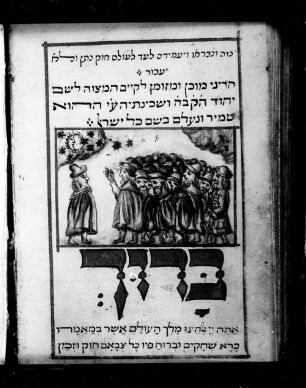 נוה ונברחו ויעמידם לעד לעולם חוק נתן ולא
יעבור
הריני מוכן ומזומן לקיים המצוה לשם
יחוד הקבה ושכינתיה עי ההוא
טמיר ונעלם בשם כל ישר
ברוך
אתה יי אלהינו מלך העולם אשר במאמרו
ברא שחקים וברוח פיו כל צבאם חוק וזמן